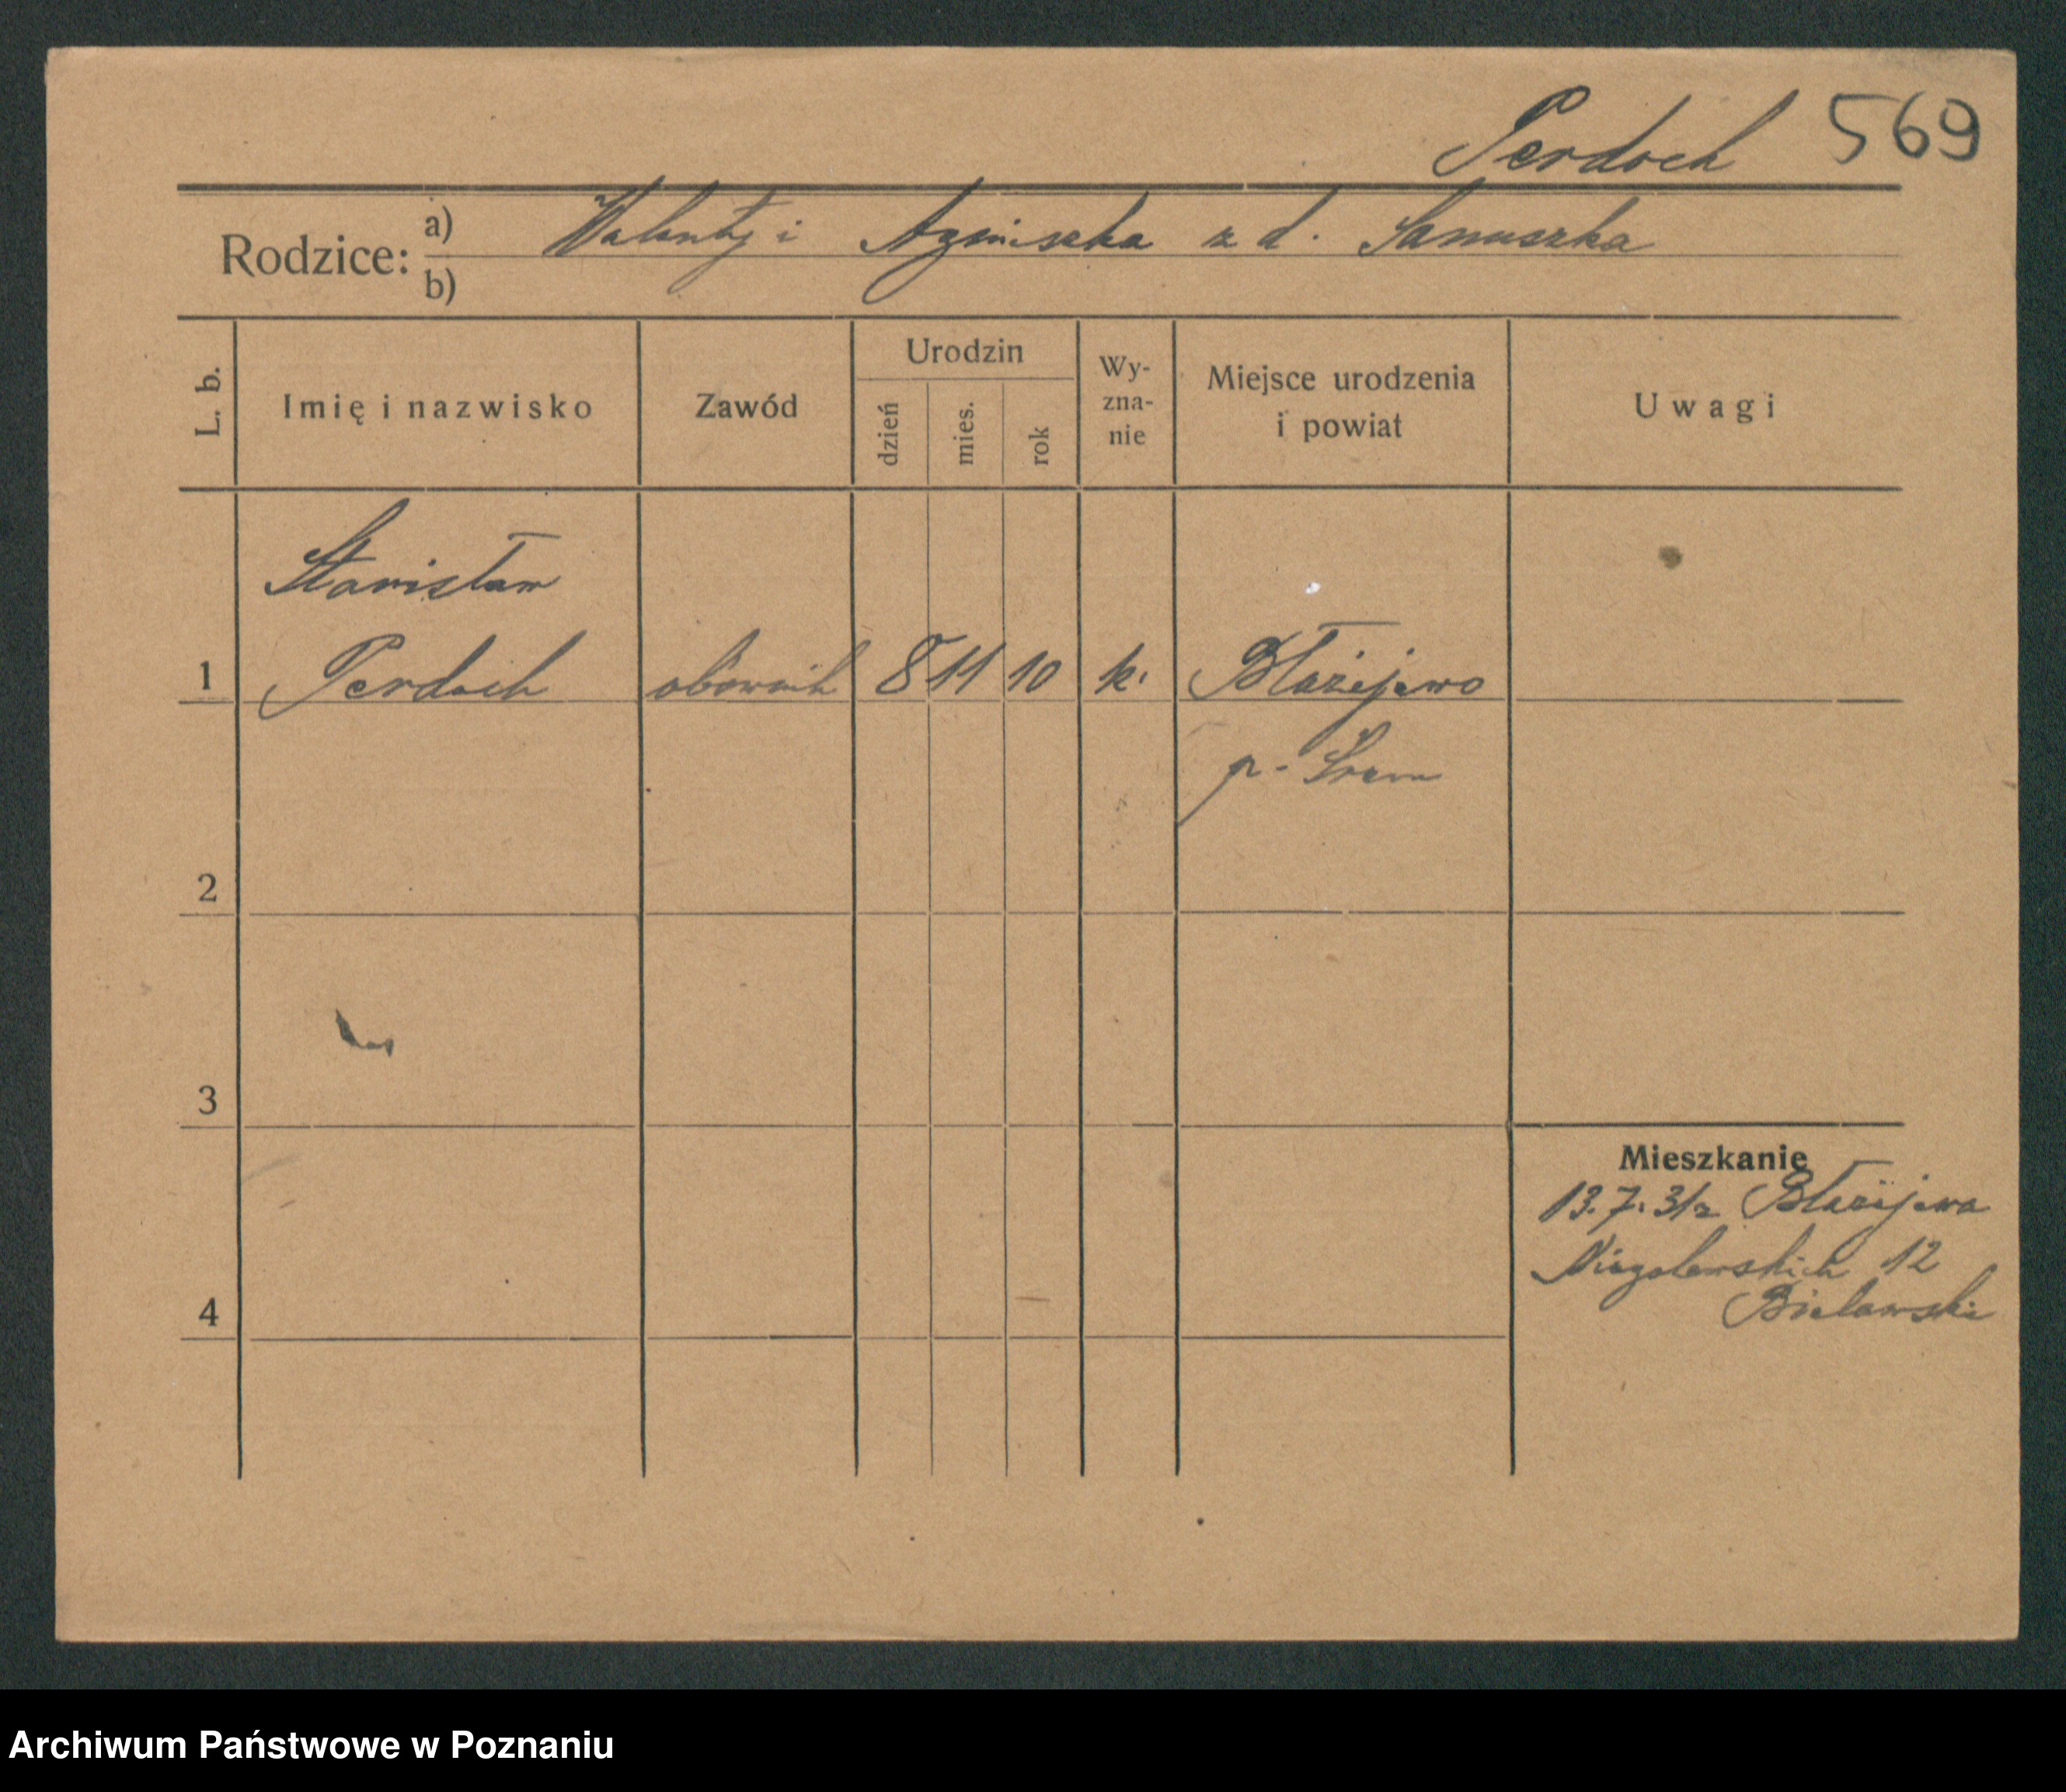 Perdoch 569
Rodzice: a) Walenty i Agnieszka z d. Januszka
b)
L. b. Imię i nazwisko Zawód Urodzin dzień mies. rok Wy-zna-nie Miejsce urodzenia i powiat Uwagi
Stanisław
1 Perdoch obownik 8 11 10 k. Błażejewo
p. Śrem
2
3
Mieszkanie
13.7.31 z Błażejewa
Niegolewskich 12
4 Bielawski
Archiwum Państwowe w Poznaniu